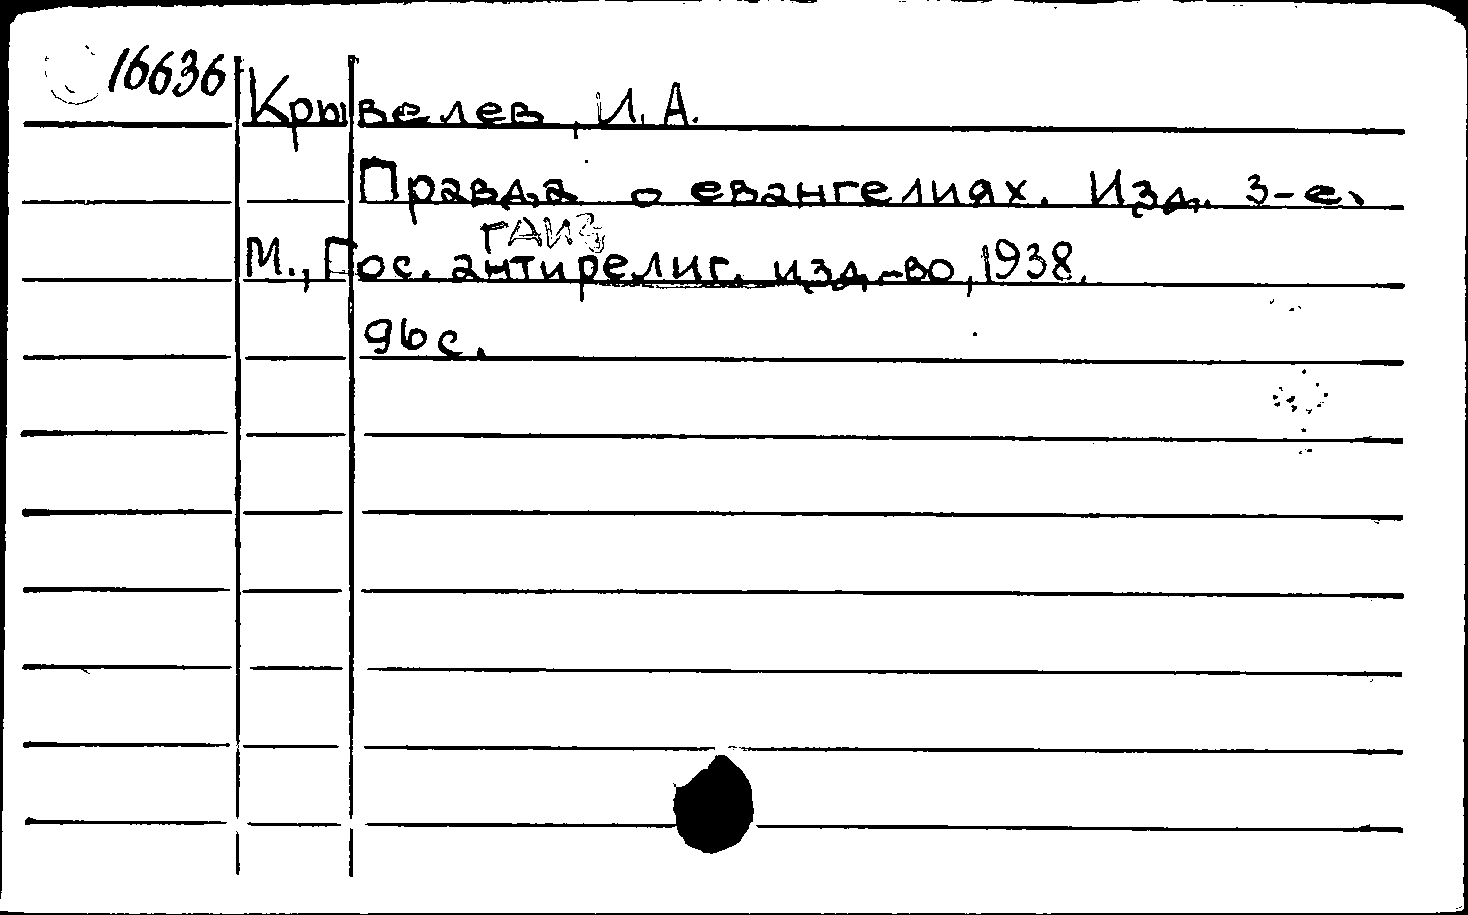 16636
Крывелев, И. А.
Правда о евангелиях. Изд. 3-е.
ГАИЗ
М., Гос. антирелиг. изд-во, 1938.
96 с.